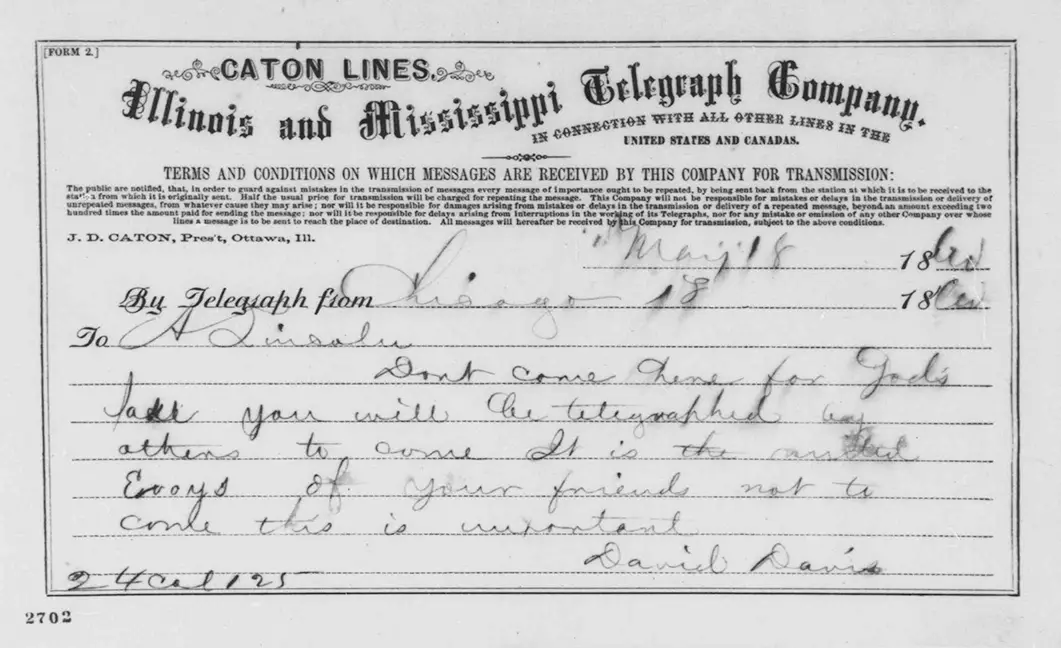 [FORM 2.]
CATON LINES.
Illinois and Mississippi Telegraph Company,
IN CONNECTION WITH ALL OTHER LINES IN THE
UNITED STATES AND CANADAS.
TERMS AND CONDITIONS ON WHICH MESSAGES ARE RECEIVED BY THIS COMPANY FOR TRANSMISSION:
The public are notified, that, in order to guard against mistakes in the transmission of messages every message of importance ought to be repeated, by being sent back from the station at which it is to be received to the
station from which it is originally sent. Half the usual price for transmission will be charged for repeating the message. This Company will not be responsible for mistakes or delays in the transmission or delivery of
unrepeated messages, from whatever cause they may arise; nor will it be responsible for damages arising from mistakes or delays in the transmission or delivery of a repeated message, beyond an amount exceeding two
hundred times the amount paid for sending the message; nor will it be responsible for delays arising from interruptions in the working of its Telegraphs, nor for any mistake or omission of any other Company over whose
lines a message is to be sent to reach the place of destination. All messages will hereafter be received by this Company for transmission, subject to the above conditions.
J. D. CATON, Pres't, Ottawa, Ill.
May 18 1860
By Telegraph from Chicago 18 1860
To A Lincoln
Dont come here for God's
sake you will be telegraphed by
others to come It is the united
of your friends not to
come this is important
David Davis
24 Col 125
2702